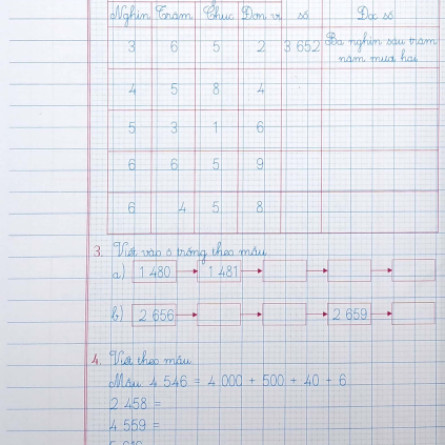 Nghìn Trăm Chục Đơn vị số Đọc số
3 6 5 2 3 652 Ba nghìn sáu trăm
năm mươi hai
4 5 8 4
5 3 1 6
6 6 5 9
6 4 5 8
3. Viết vào ô trống theo mẫu
a) 1 480 1 481
b) 2 656 2 659
4. Viết theo mẫu
Mẫu: 4 546 = 4 000 + 500 + 40 + 6
2 458 =
4 559 =